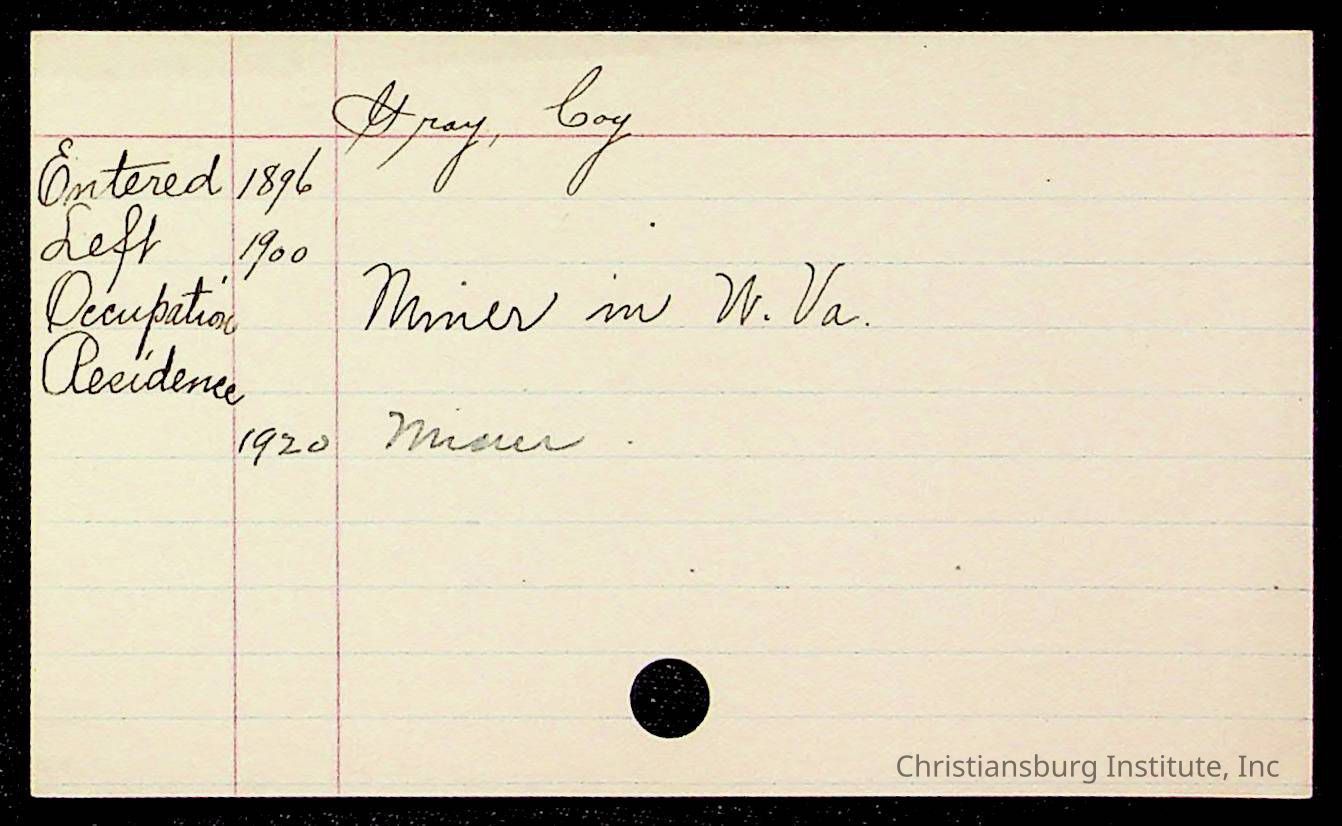 Gray, Coy
Entered 1896
Left 1900
Occupation Miner in W. Va.
Residence
1920 Miner
Christiansburg Institute, Inc